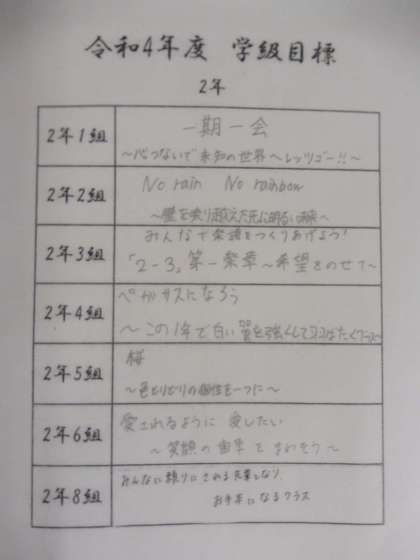 令和4年度 学級目標
2年
2年1組
一期一会
～心つないで未知の世界へレッツゴー!!～
2年2組
No rain No rainbow
～壁を乗り越えた先に明るい未来～
2年3組
みんなで楽譜をつくりあげよう!
「2-3」第一楽章～希望をのせて～
2年4組
ペガサスになろう
～この1年で白い翼を強くして羽ばたくクラス～
2年5組
桜
～色とりどりの個性を一つに～
2年6組
愛されるように 愛したい
～笑顔の歯車をまわそう～
2年8組
みんなに頼りにされる先輩となり、
お手本になるクラス